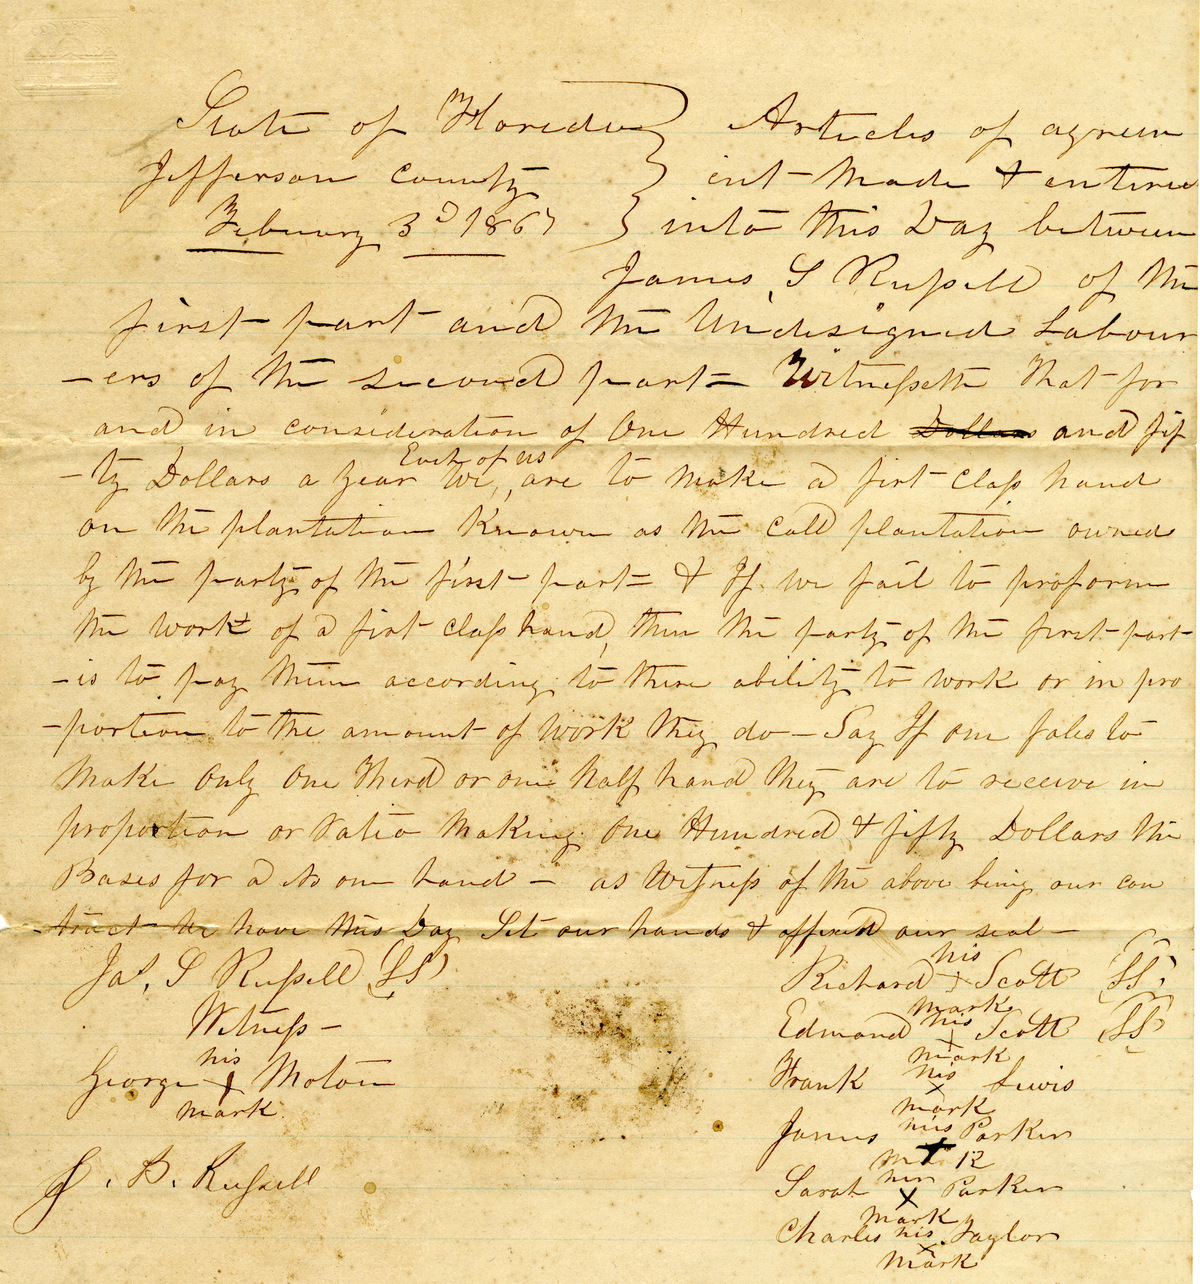 State of Florida } Articles of agreem
Jefferson County } ent Made & entired
February 3d 1867 } into this Day between
James, S Russell of the
first part and the Undesigned Labour
-ers of the second part= Witnesseth That for
and in consideration of One Hundred Dollars and fif
-ty Dollars a year We, Each of us, are to make a first class hand
on the plantation Known as the Call plantation owned
by the party of the first part= & If we fail to proform
the work of a first class hand, then the party of the first part
-is to pay them according to there ability to work or in pro
-portion to the amount of work they do - Say If one fales to
Make Only One Third or one half hand they are to receive in
proportion or ratio Making One Hundred & fifty Dollars the
Bases for a No one hand - as Witness of the above being our con
tract We have this Day Set our hands & affixed our seal -
Jas. S Russell (LS)
Witness -
George his x mark Moton
J. B. Russell
Richard his x mark Scott (LS)
Edmond his x mark Scott (LS)
Frank his x mark Lewis
James his x mark Parker
Sarah her x mark Parker
Charles his x mark Taylor